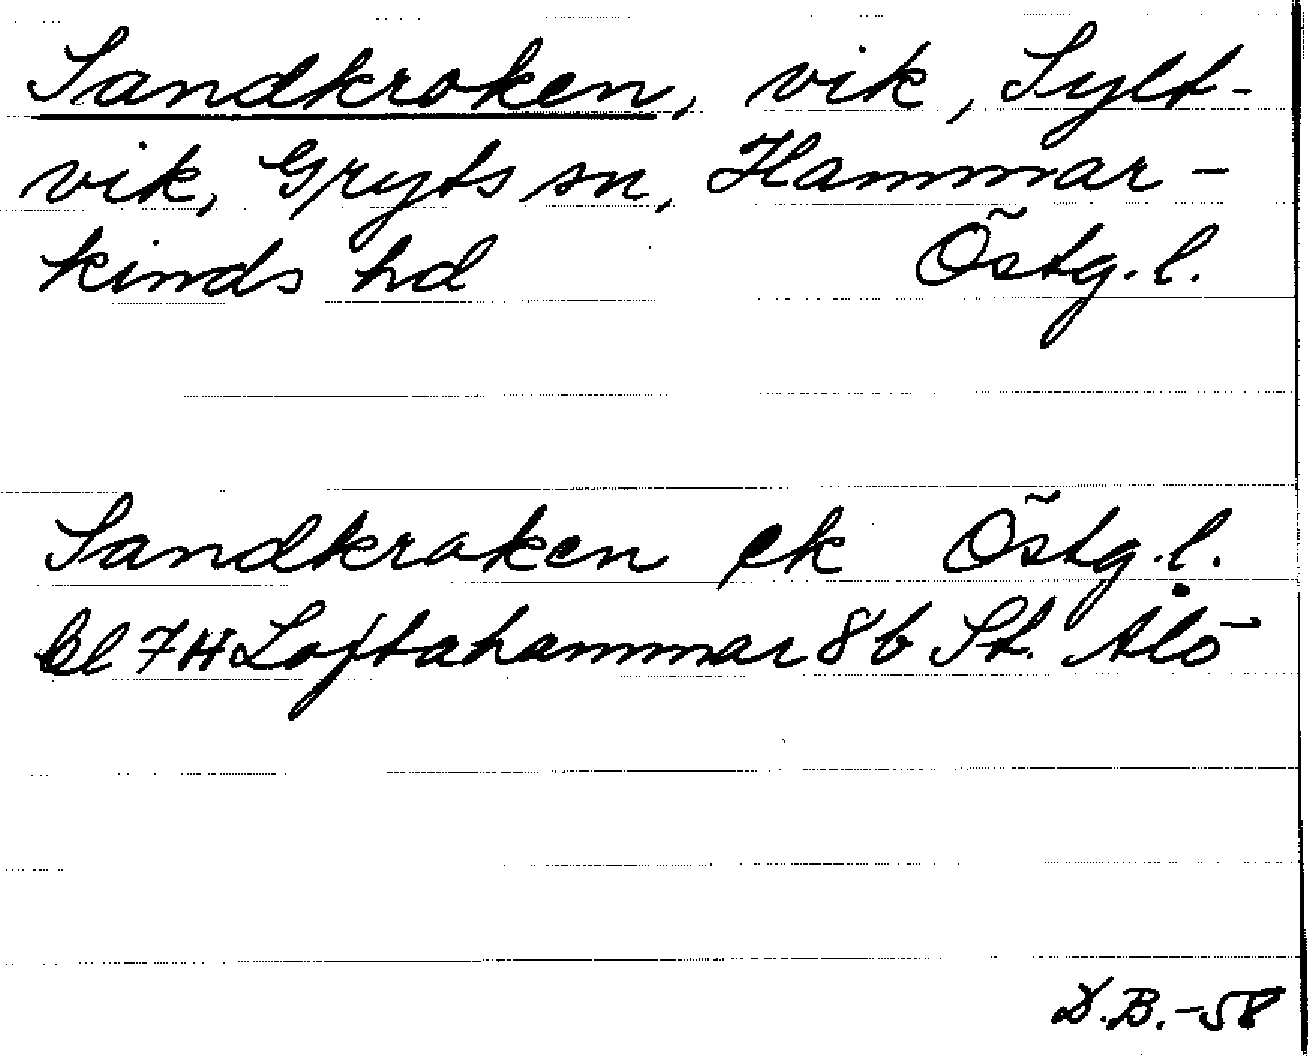 Sandkroken, vik, Sylt-
vik, Gryts sn, Hammar-
kinds hd Östg. l.
Sandkroken ek Östg. l.
bl 7H Loftahammar 8b St. Ålö
D.B.-58